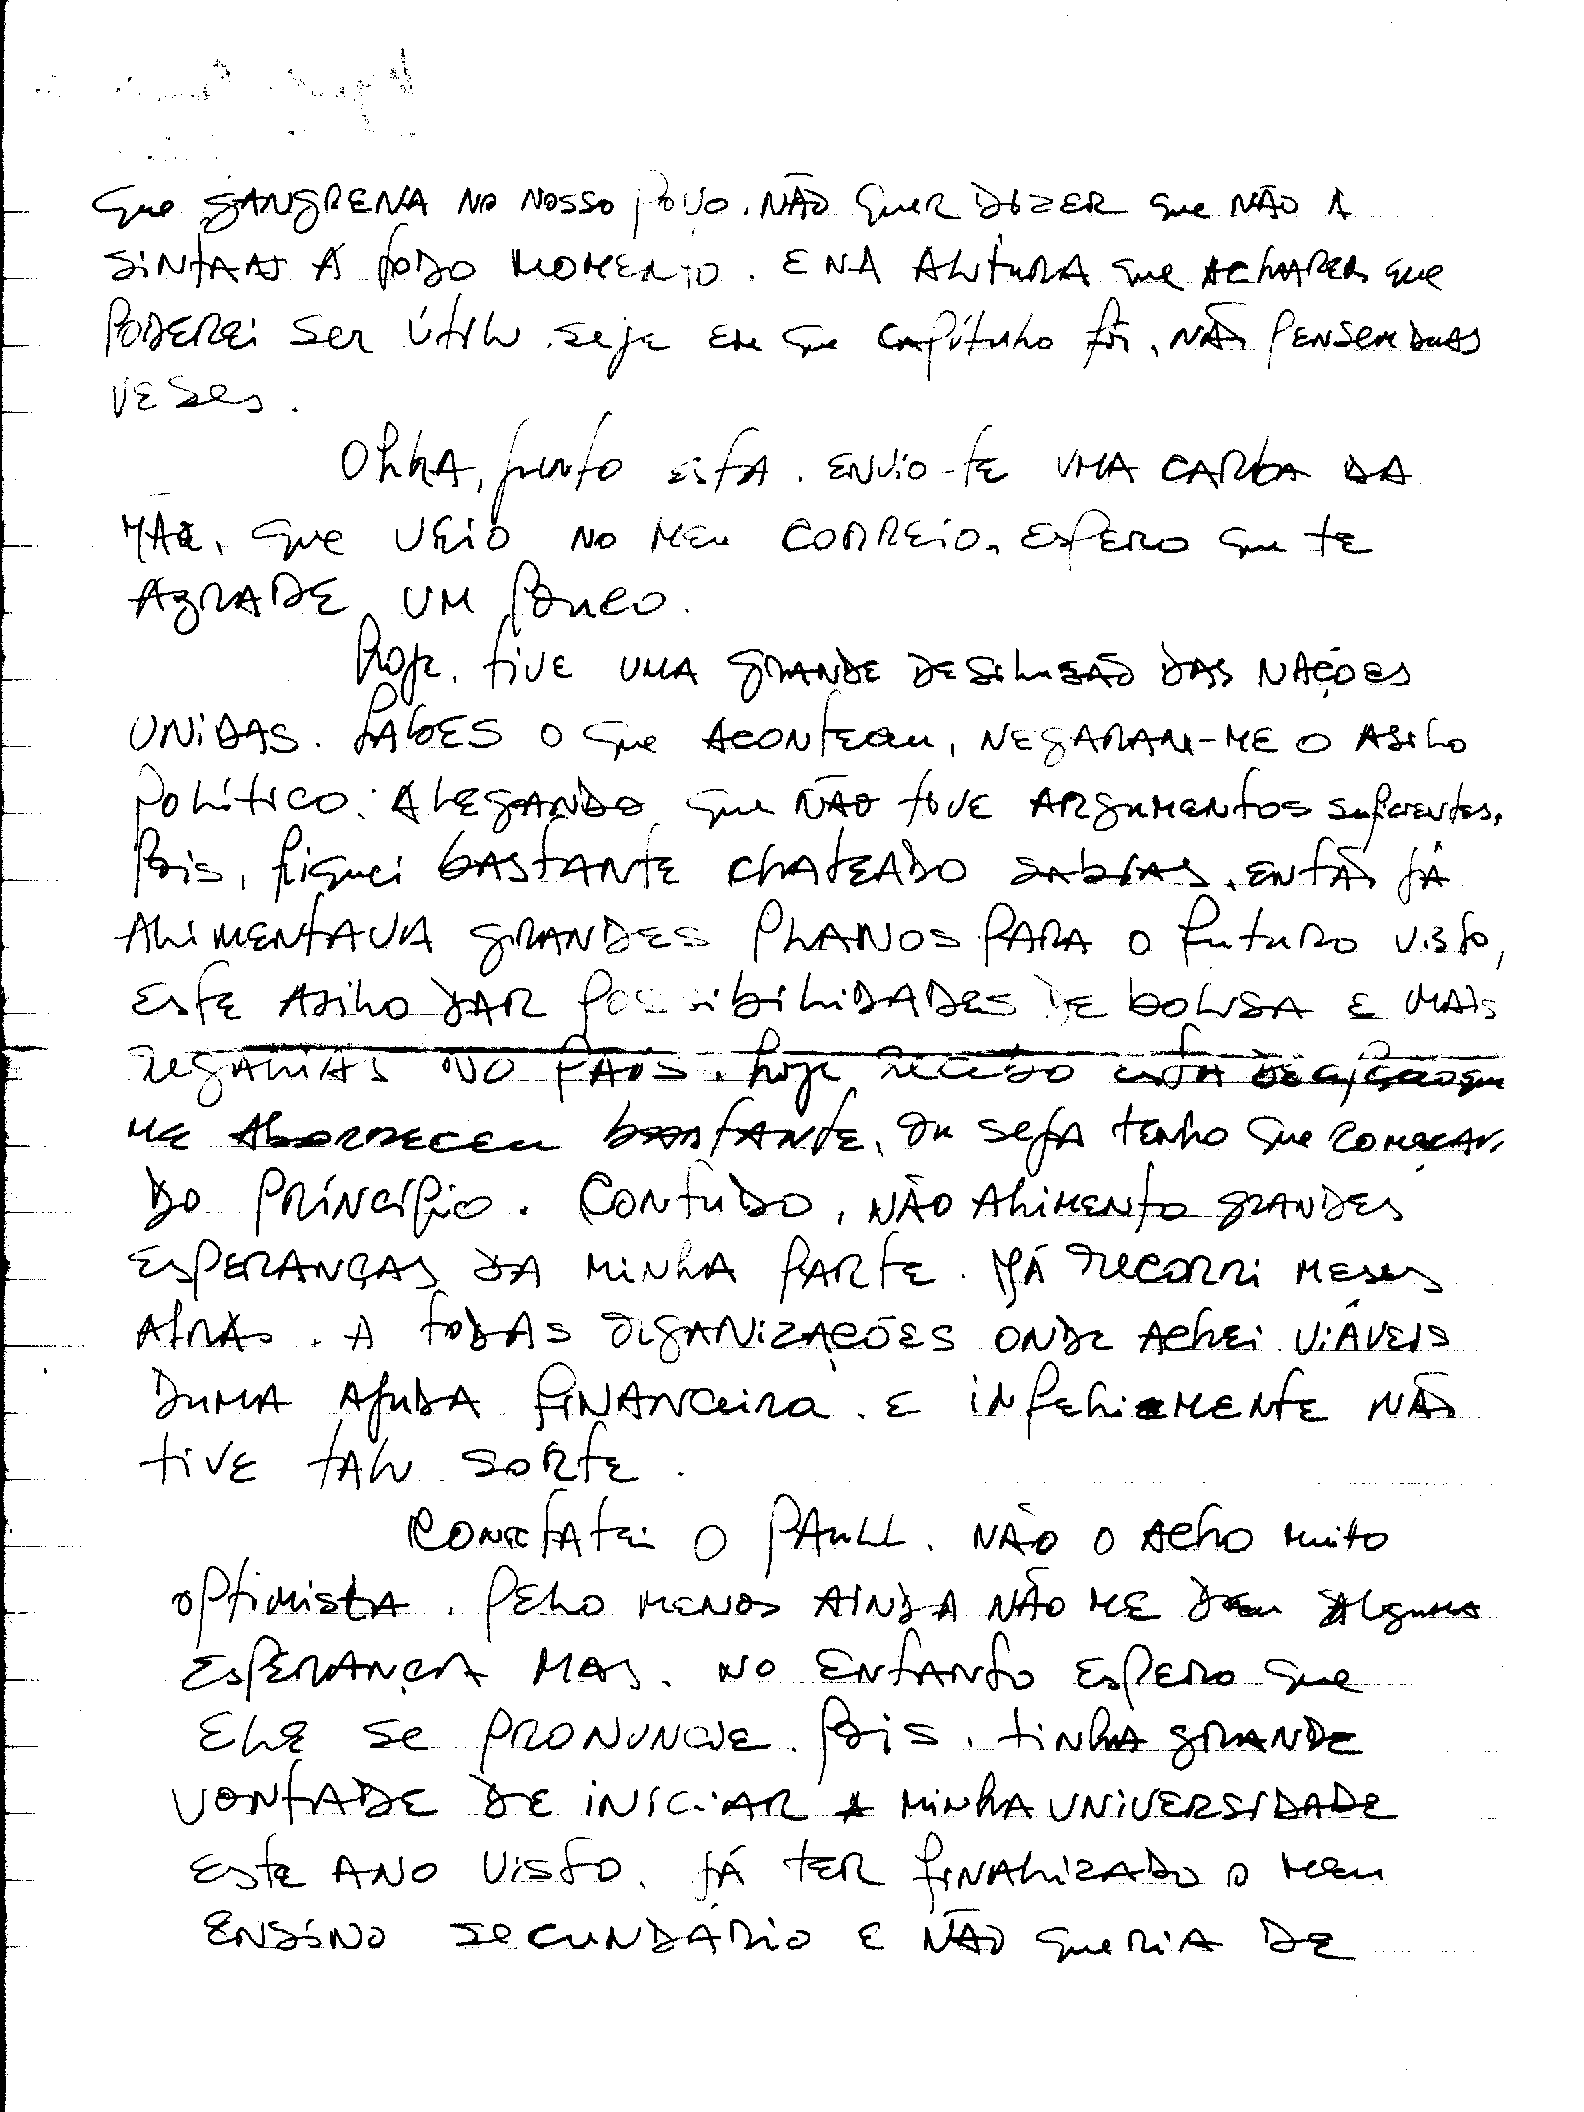 que gangrena no nosso povo. Não quer dizer que não a
sintas a todo momento. E na altura que achares que
poderei ser útil, seja em que capítulo fôr, não penses duas
veses.
Olha, junto esta, envio-te uma carta da
Mãe, que veio no meu correio, espero que te
agrade um pouco.
Hoje, tive uma grande desilusão das Nações
Unidas. Sabes o que aconteceu, negaram-me o asilo
político. Alegando que não tive argumentos suficientes.
Pois, fiquei bastante chateado sabias, então já
alimentava grandes planos para o futuro visto,
este asilo dar possibilidades de bolsa e mais
regalias no país. Hoje recebo esta decisão que
me aborreceu bastante, ou seja tenho que começar
do príncípio. Contudo, não alimento grandes
esperanças da minha parte. Já recorri meses
atrás, a todas organizações onde achei viáveis
duma ajuda financeira, e infelizmente não
tive tal sorte.
Conctatei o Paull. Não o acho muito
optimista. Pelo menos ainda não me deu alguma
esperança mas, no entanto espero que
ele se pronuncie. Pois, tinha grande
vontade de iniciar a minha universidade
este ano visto, já ter finalizado o meu
ensino secundário e não queria de